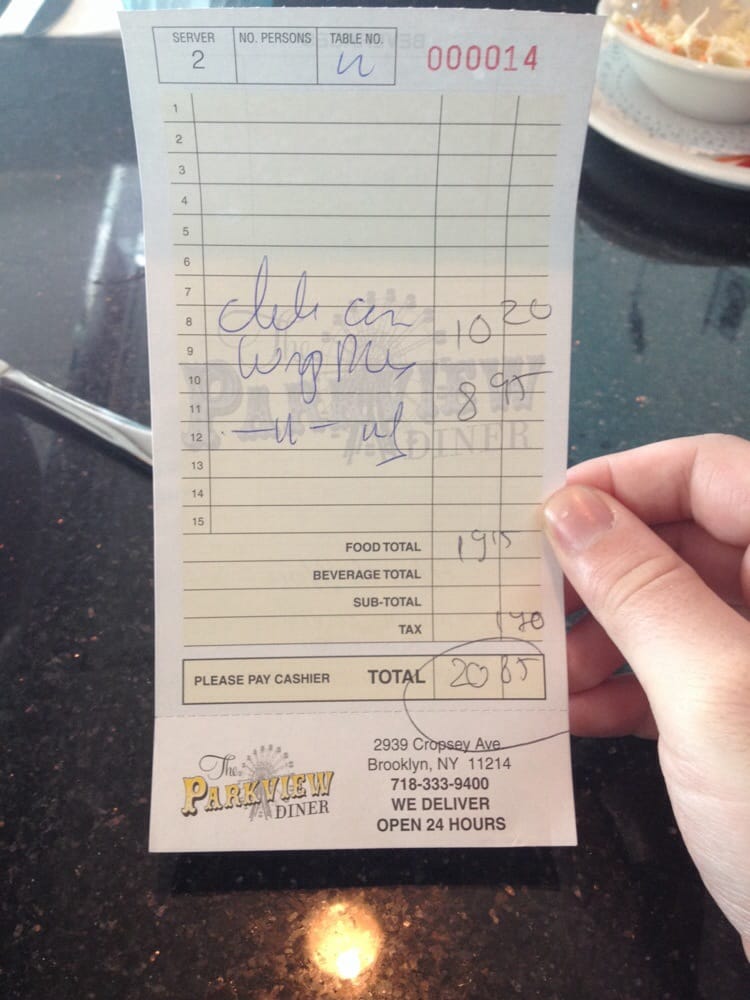 SERVER NO. PERSONS TABLE NO. 000014
2
1
2
3
4
5
6
7
8 10 20
9
10 8 95
11
12
13
14
15
FOOD TOTAL 19 15
BEVERAGE TOTAL
SUB-TOTAL
TAX 1 70
PLEASE PAY CASHIER TOTAL 20 85
The PARKVIEW DINER
The
PARKVIEW
DINER
2939 Cropsey Ave.
Brooklyn, NY 11214
718-333-9400
WE DELIVER
OPEN 24 HOURS